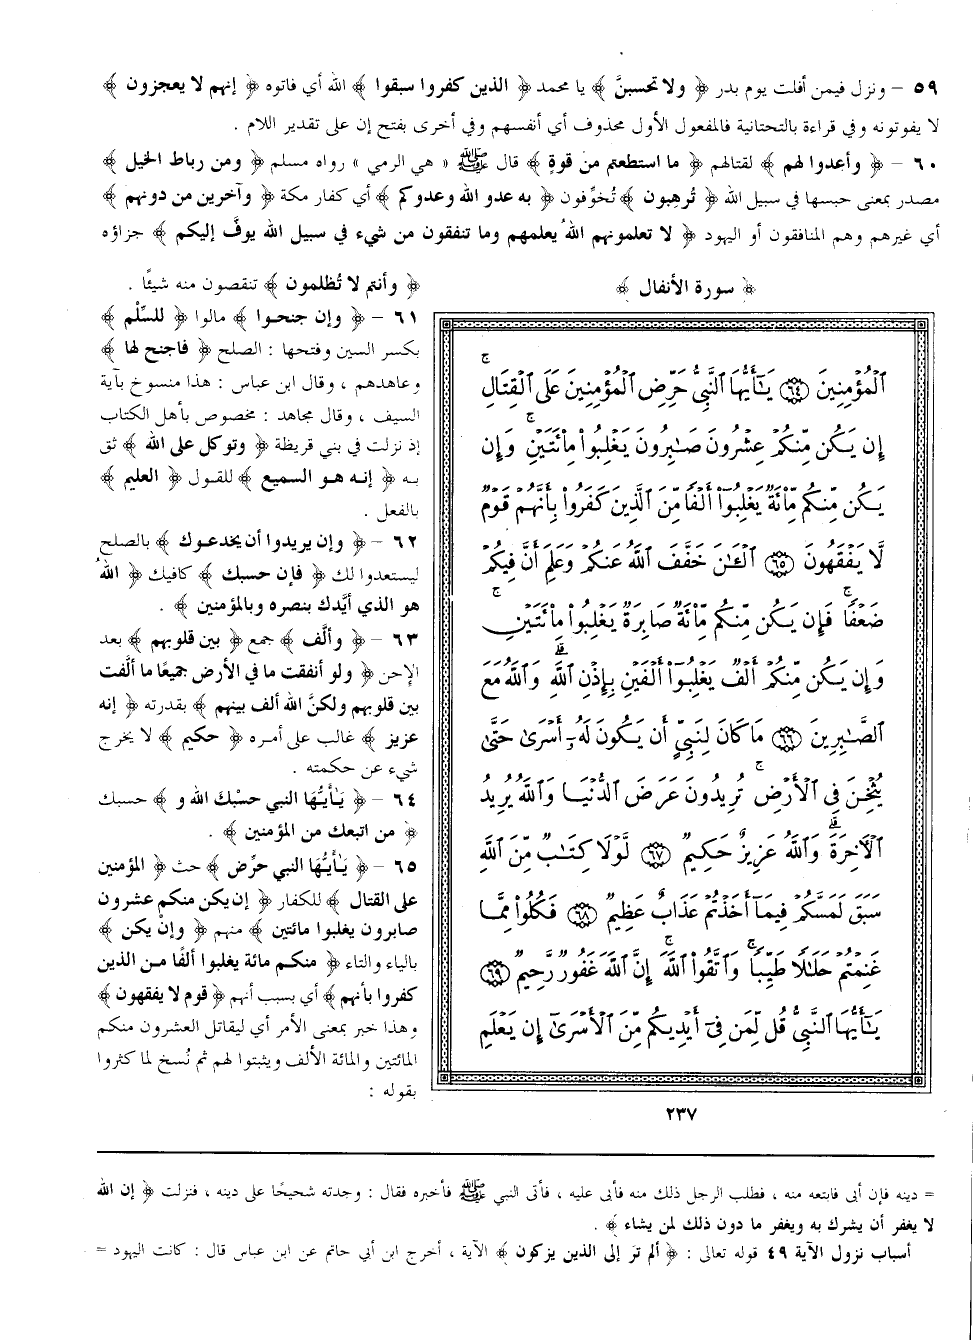 ٥٩ - ونزل فيمن أفلت يوم بدر ﴿ ولا تحسبنَّ ﴾ يا محمد ﴿ الذين كفروا سبقوا ﴾ الله أي فاتوه ﴿ إنهم لا يعجزون ﴾
لا يفوتونه وفي قراءة بالتحتانية فالمفعول الأول محذوف أي أنفسهم وفي أخرى بفتح إن على تقدير اللام .
٦٠ - ﴿ وأعدوا لهم ﴾ لقتالهم ﴿ ما استطعتم من قوةٍ ﴾ قال ﷺ « هي الرمي » رواه مسلم ﴿ ومن رباط الخيل ﴾
مصدر بمعنى حبسها في سبيل الله ﴿ تُرهِبون ﴾ تُخوِّفون ﴿ به عدو الله وعدوكم ﴾ أي كفار مكة ﴿ وآخرين من دونهم ﴾
أي غيرهم وهم المنافقون أو اليهود ﴿ لا تعلمونهم اللهُ يعلمهم وما تنفقون من شيء في سبيل الله يوفَّ إليكم ﴾ جزاؤه
﴿ وأنتم لا تُظلمون ﴾ تنقصون منه شيئًا .
٦١ - ﴿ وإن جنحوا ﴾ مالوا ﴿ للسِّلْم ﴾
بكسر السين وفتحها : الصلح ﴿ فاجنح لها ﴾
وعاهدهم ، وقال ابن عباس : هذا منسوخ بآية
السيف ، وقال مجاهد : مخصوص بأهل الكتاب
إذ نزلت في بني قريظة ﴿ وتوكل على الله ﴾ ثق
به ﴿ إنه هو السميع ﴾ للقول ﴿ العليم ﴾
بالفعل .
٦٢ - ﴿ وإن يريدوا أن يخدعوك ﴾ بالصلح
ليستعدوا لك ﴿ فإن حسبك ﴾ كافيك ﴿ اللهُ
هو الذي أيَّدك بنصره وبالمؤمنين ﴾ .
٦٣ - ﴿ وألَّف ﴾ جمع ﴿ بين قلوبهم ﴾ بعد
الإحن ﴿ ولو أنفقت ما في الأرض جميعًا ما ألَّفت
بين قلوبهم ولكنَّ الله ألف بينهم ﴾ بقدرته ﴿ إنه
عزيز ﴾ غالب على أمره ﴿ حكيم ﴾ لا يخرج
شيء عن حكمته .
٦٤ - ﴿ يَأيُّها النبي حسْبك الله و ﴾ حسبك
﴿ من اتبعك من المؤمنين ﴾ .
٦٥ - ﴿ يَأيُّها النبي حرِّض ﴾ حث ﴿ المؤمنين
على القتال ﴾ للكفار ﴿ إن يكن منكم عشرون
صابرون يغلبوا مائتين ﴾ منهم ﴿ وإنْ يكن ﴾
بالياء والتاء ﴿ منكم مائة يغلبوا ألفًا من الذين
كفروا بأنهم ﴾ أي بسبب أنهم ﴿ قوم لا يفقهون ﴾
وهذا خبر بمعنى الأمر أي ليقاتل العشرون منكم
المائتين والمائة الألف ويثبتوا لهم ثم نُسخ لما كثروا
بقوله :
﴿ سورة الأنفال ﴾
ٱلْمُؤْمِنِينَ ٦٤ يَٰٓأَيُّهَا ٱلنَّبِىُّ حَرِّضِ ٱلْمُؤْمِنِينَ عَلَى ٱلْقِتَالِۚ
إِن يَكُن مِّنكُمْ عِشْرُونَ صَٰبِرُونَ يَغْلِبُوا۟ مِا۟ئَتَيْنِۚ وَإِن
يَكُن مِّنكُم مِّا۟ئَةٌ يَغْلِبُوٓا۟ أَلْفًا مِّنَ ٱلَّذِينَ كَفَرُوا۟ بِأَنَّهُمْ قَوْمٌ
لَّا يَفْقَهُونَ ٦٥ ٱلْـَٰٔنَ خَفَّفَ ٱللَّهُ عَنكُمْ وَعَلِمَ أَنَّ فِيكُمْ
ضَعْفًاۚ فَإِن يَكُن مِّنكُم مِّا۟ئَةٌ صَابِرَةٌ يَغْلِبُوا۟ مِا۟ئَتَيْنِۚ
وَإِن يَكُن مِّنكُمْ أَلْفٌ يَغْلِبُوٓا۟ أَلْفَيْنِ بِإِذْنِ ٱللَّهِۗ وَٱللَّهُ مَعَ
ٱلصَّٰبِرِينَ ٦٦ مَا كَانَ لِنَبِىٍّ أَن يَكُونَ لَهُۥٓ أَسْرَىٰ حَتَّىٰ
يُثْخِنَ فِى ٱلْأَرْضِۚ تُرِيدُونَ عَرَضَ ٱلدُّنْيَا وَٱللَّهُ يُرِيدُ
ٱلْـَٔاخِرَةَۗ وَٱللَّهُ عَزِيزٌ حَكِيمٌ ٦٧ لَّوْلَا كِتَٰبٌ مِّنَ ٱللَّهِ
سَبَقَ لَمَسَّكُمْ فِيمَآ أَخَذْتُمْ عَذَابٌ عَظِيمٌ ٦٨ فَكُلُوا۟ مِمَّا
غَنِمْتُمْ حَلَٰلًا طَيِّبًاۚ وَٱتَّقُوا۟ ٱللَّهَۚ إِنَّ ٱللَّهَ غَفُورٌ رَّحِيمٌ ٦٩
يَٰٓأَيُّهَا ٱلنَّبِىُّ قُل لِّمَن فِىٓ أَيْدِيكُم مِّنَ ٱلْأَسْرَىٰٓ إِن يَعْلَمِ
٢٣٧
= دينه فإن أبى فابتعه منه ، فطلب الرجل ذلك منه فأبى عليه ، فأتى النبي ﷺ فأخبره فقال : وجدته شحيحًا على دينه ، فنزلت ﴿ إن الله
لا يغفر أن يشرك به ويغفر ما دون ذلك لمن يشاء ﴾ .
أسباب نزول الآية ٤٩ قوله تعالى : ﴿ ألم تر إلى الذين يزكون ﴾ الآية ، أخرج ابن أبي حاتم عن ابن عباس قال : كانت اليهود =